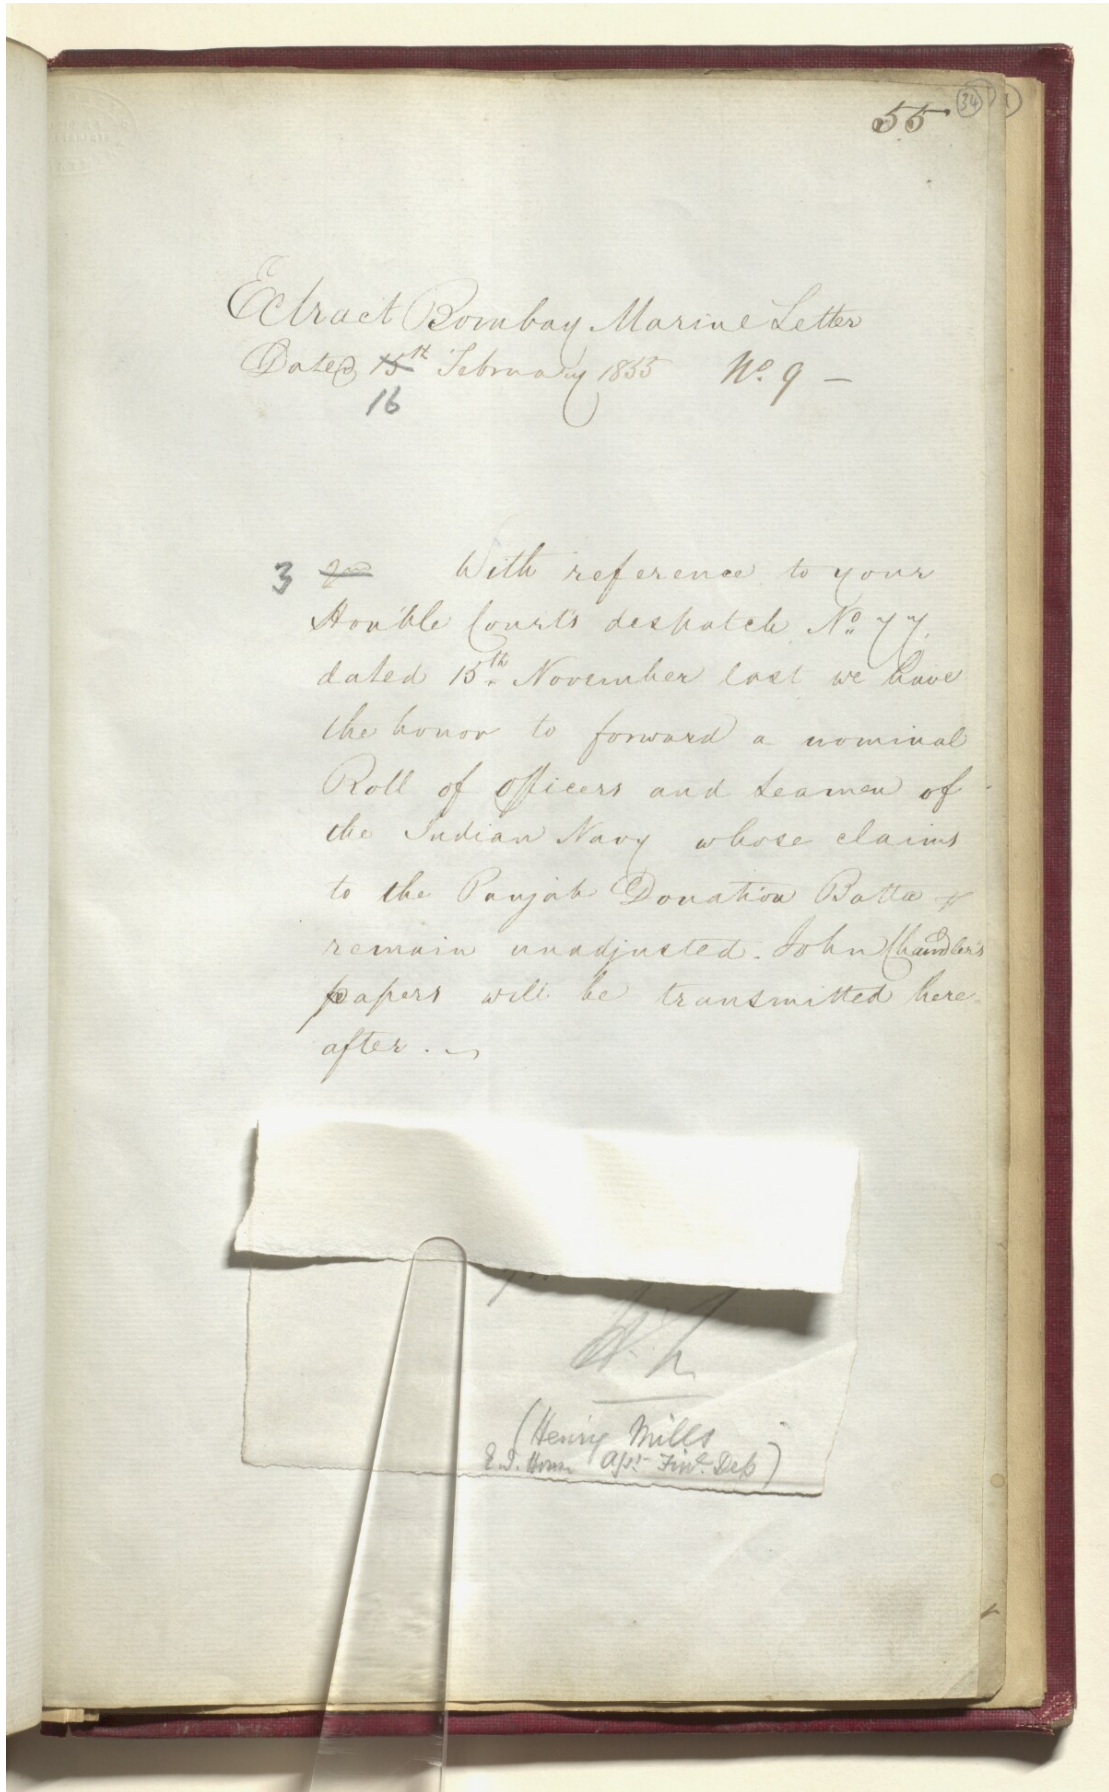 55 34
Extract Bombay Marine Letter
Dated 15th February 1855 No. 9 —
16
3 With reference to your
Hon'ble Court's despatch No 77,
dated 15th November last we have
the honor to forward a nominal
Roll of officers and Seamen of
the Indian Navy whose claims
to the Punjab Donation Batta
remain unadjusted. John Chandler's
papers will be transmitted here
after.
(Henry Mills
E.I. House Finl. Dep)